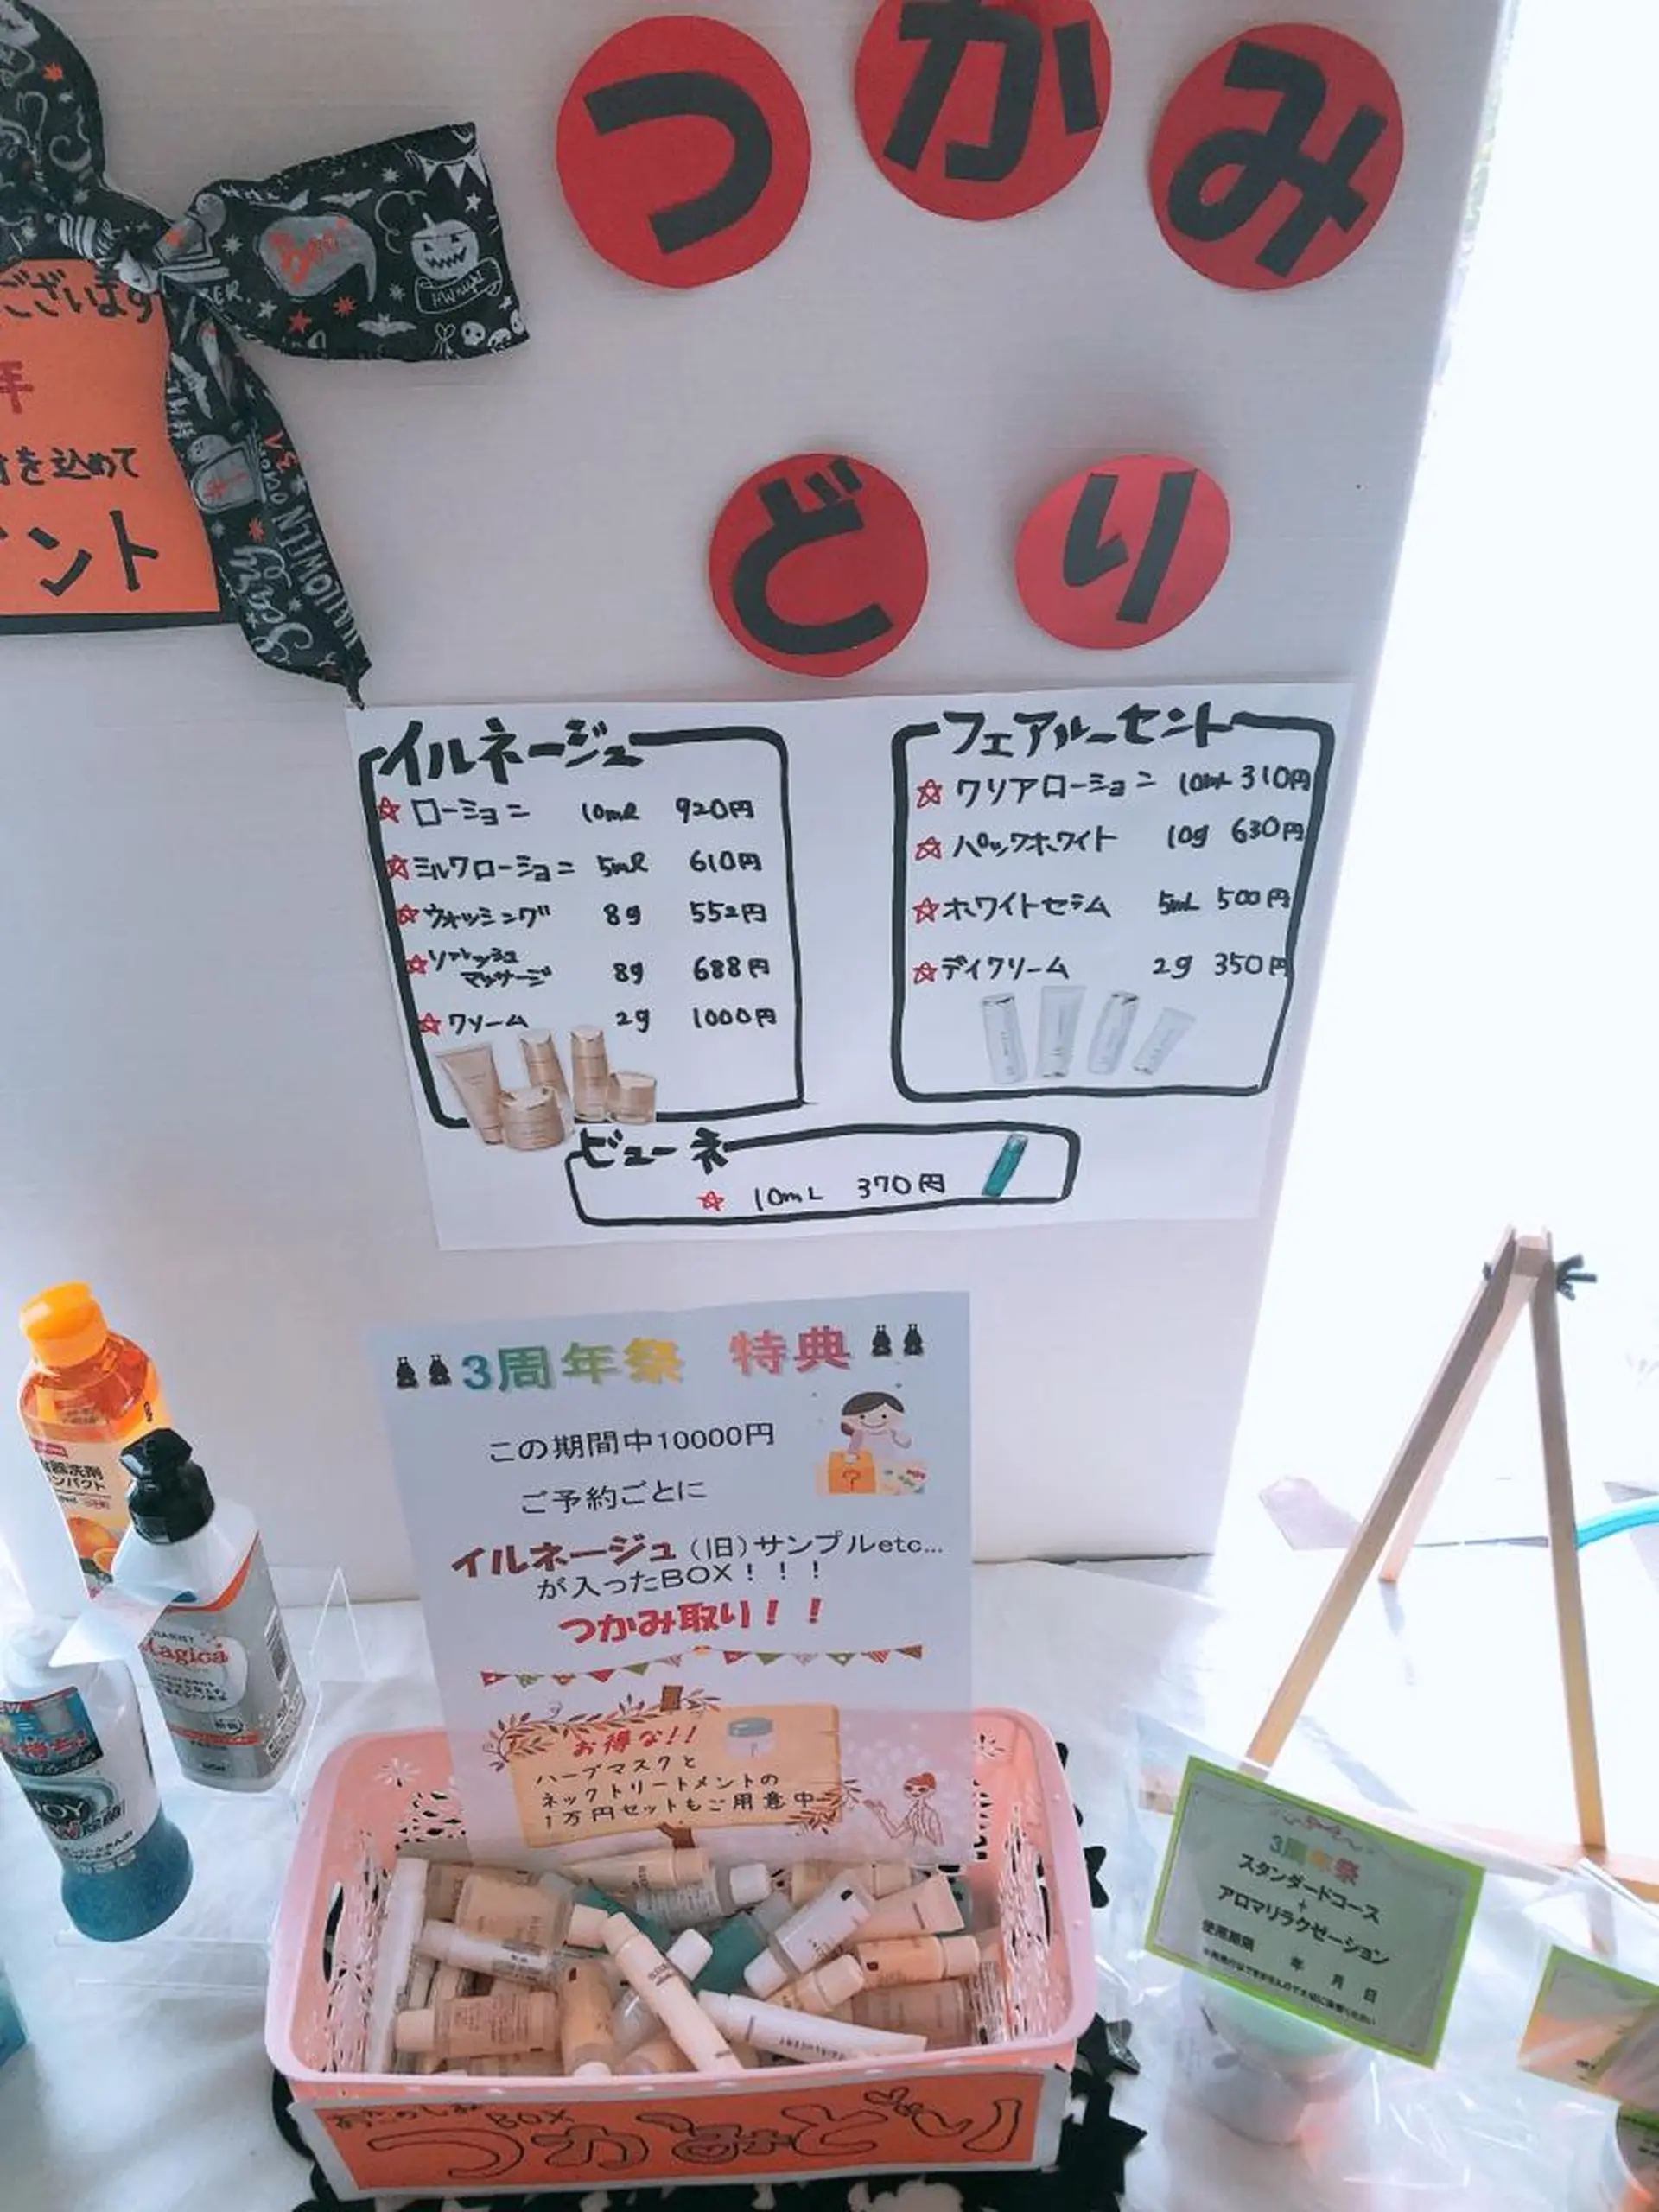 つかみ
どり
Boo!
ございます
年
を込めて
ント
イルネージュ
☆ローション 10ml 920円
☆ミルクローション 5ml 610円
☆ウォッシング 8g 552円
☆リフレッシュ
マッサージ 8g 688円
☆クリーム 2g 1000円
フェアルーセント
☆クリアローション 10mL 310円
☆パックホワイト 10g 630円
☆ホワイトセラム 5mL 500円
☆デイクリーム 2g 350円
ビューネ
☆ 10mL 370円
3周年祭 特典
この期間中10000円
ご予約ごとに
イルネージュ(旧)サンプルetc...
が入ったBOX!!!
つかみ取り!!
お得な!!
ハーブマスクと
ネックトリートメントの
1万円セットもご用意中
器洗剤
ンパクト
CHARMY
Magica
JOY
おたのしみBOX
つかみどり
3周年祭
スタンダードコース
+
アロマリラクゼーション
使用期限 年 月 日